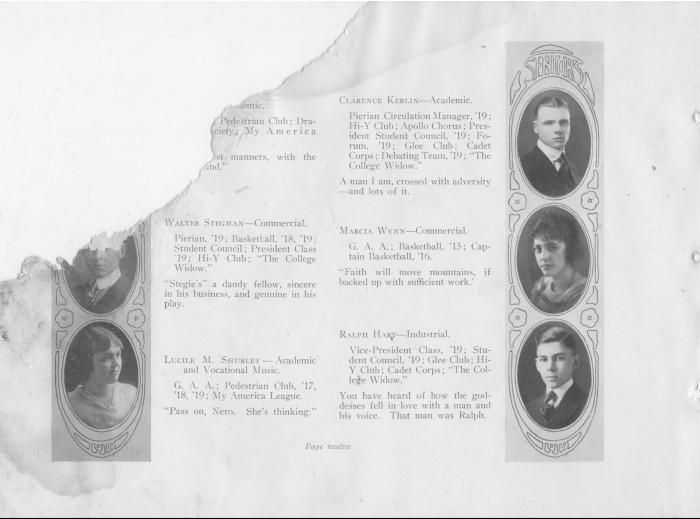 emic.
Pedestrian Club; Dra-
ciety; My America
est manners, with the
and."
WALTER STEGMAN—Commercial.
Pierian, '19; Basketball, '18, '19;
Student Council; President Class
'19; Hi-Y Club; "The College
Widow."
"Stegie's" a dandy fellow, sincere
in his business, and genuine in his
play.
LUCILE M. SHURLEY—Academic
and Vocational Music.
G. A. A.; Pedestrian Club, '17,
'18, '19; My America League.
"Pass on, Nero. She's thinking."
CLARENCE KERLIN—Academic.
Pierian Circulation Manager, '19;
Hi-Y Club; Apollo Chorus; Pres-
ident Student Council, '19; Fo-
rum, '19; Glee Club; Cadet
Corps; Debating Team, '19; "The
College Widow."
A man I am, crossed with adversity
—and lots of it.
MARCIA WYNN—Commercial.
G. A. A.; Basketball, '15; Cap-
tain Basketball, '16.
"Faith will move mountains, if
backed up with sufficient work.'
RALPH HART—Industrial.
Vice-President Class, '19; Stu-
dent Council, '19; Glee Club; Hi-
Y Club; Cadet Corps; "The Col-
lege Widow."
You have heard of how the god-
desses fell in love with a man and
his voice. That man was Ralph.
SENIORS
Page twelve